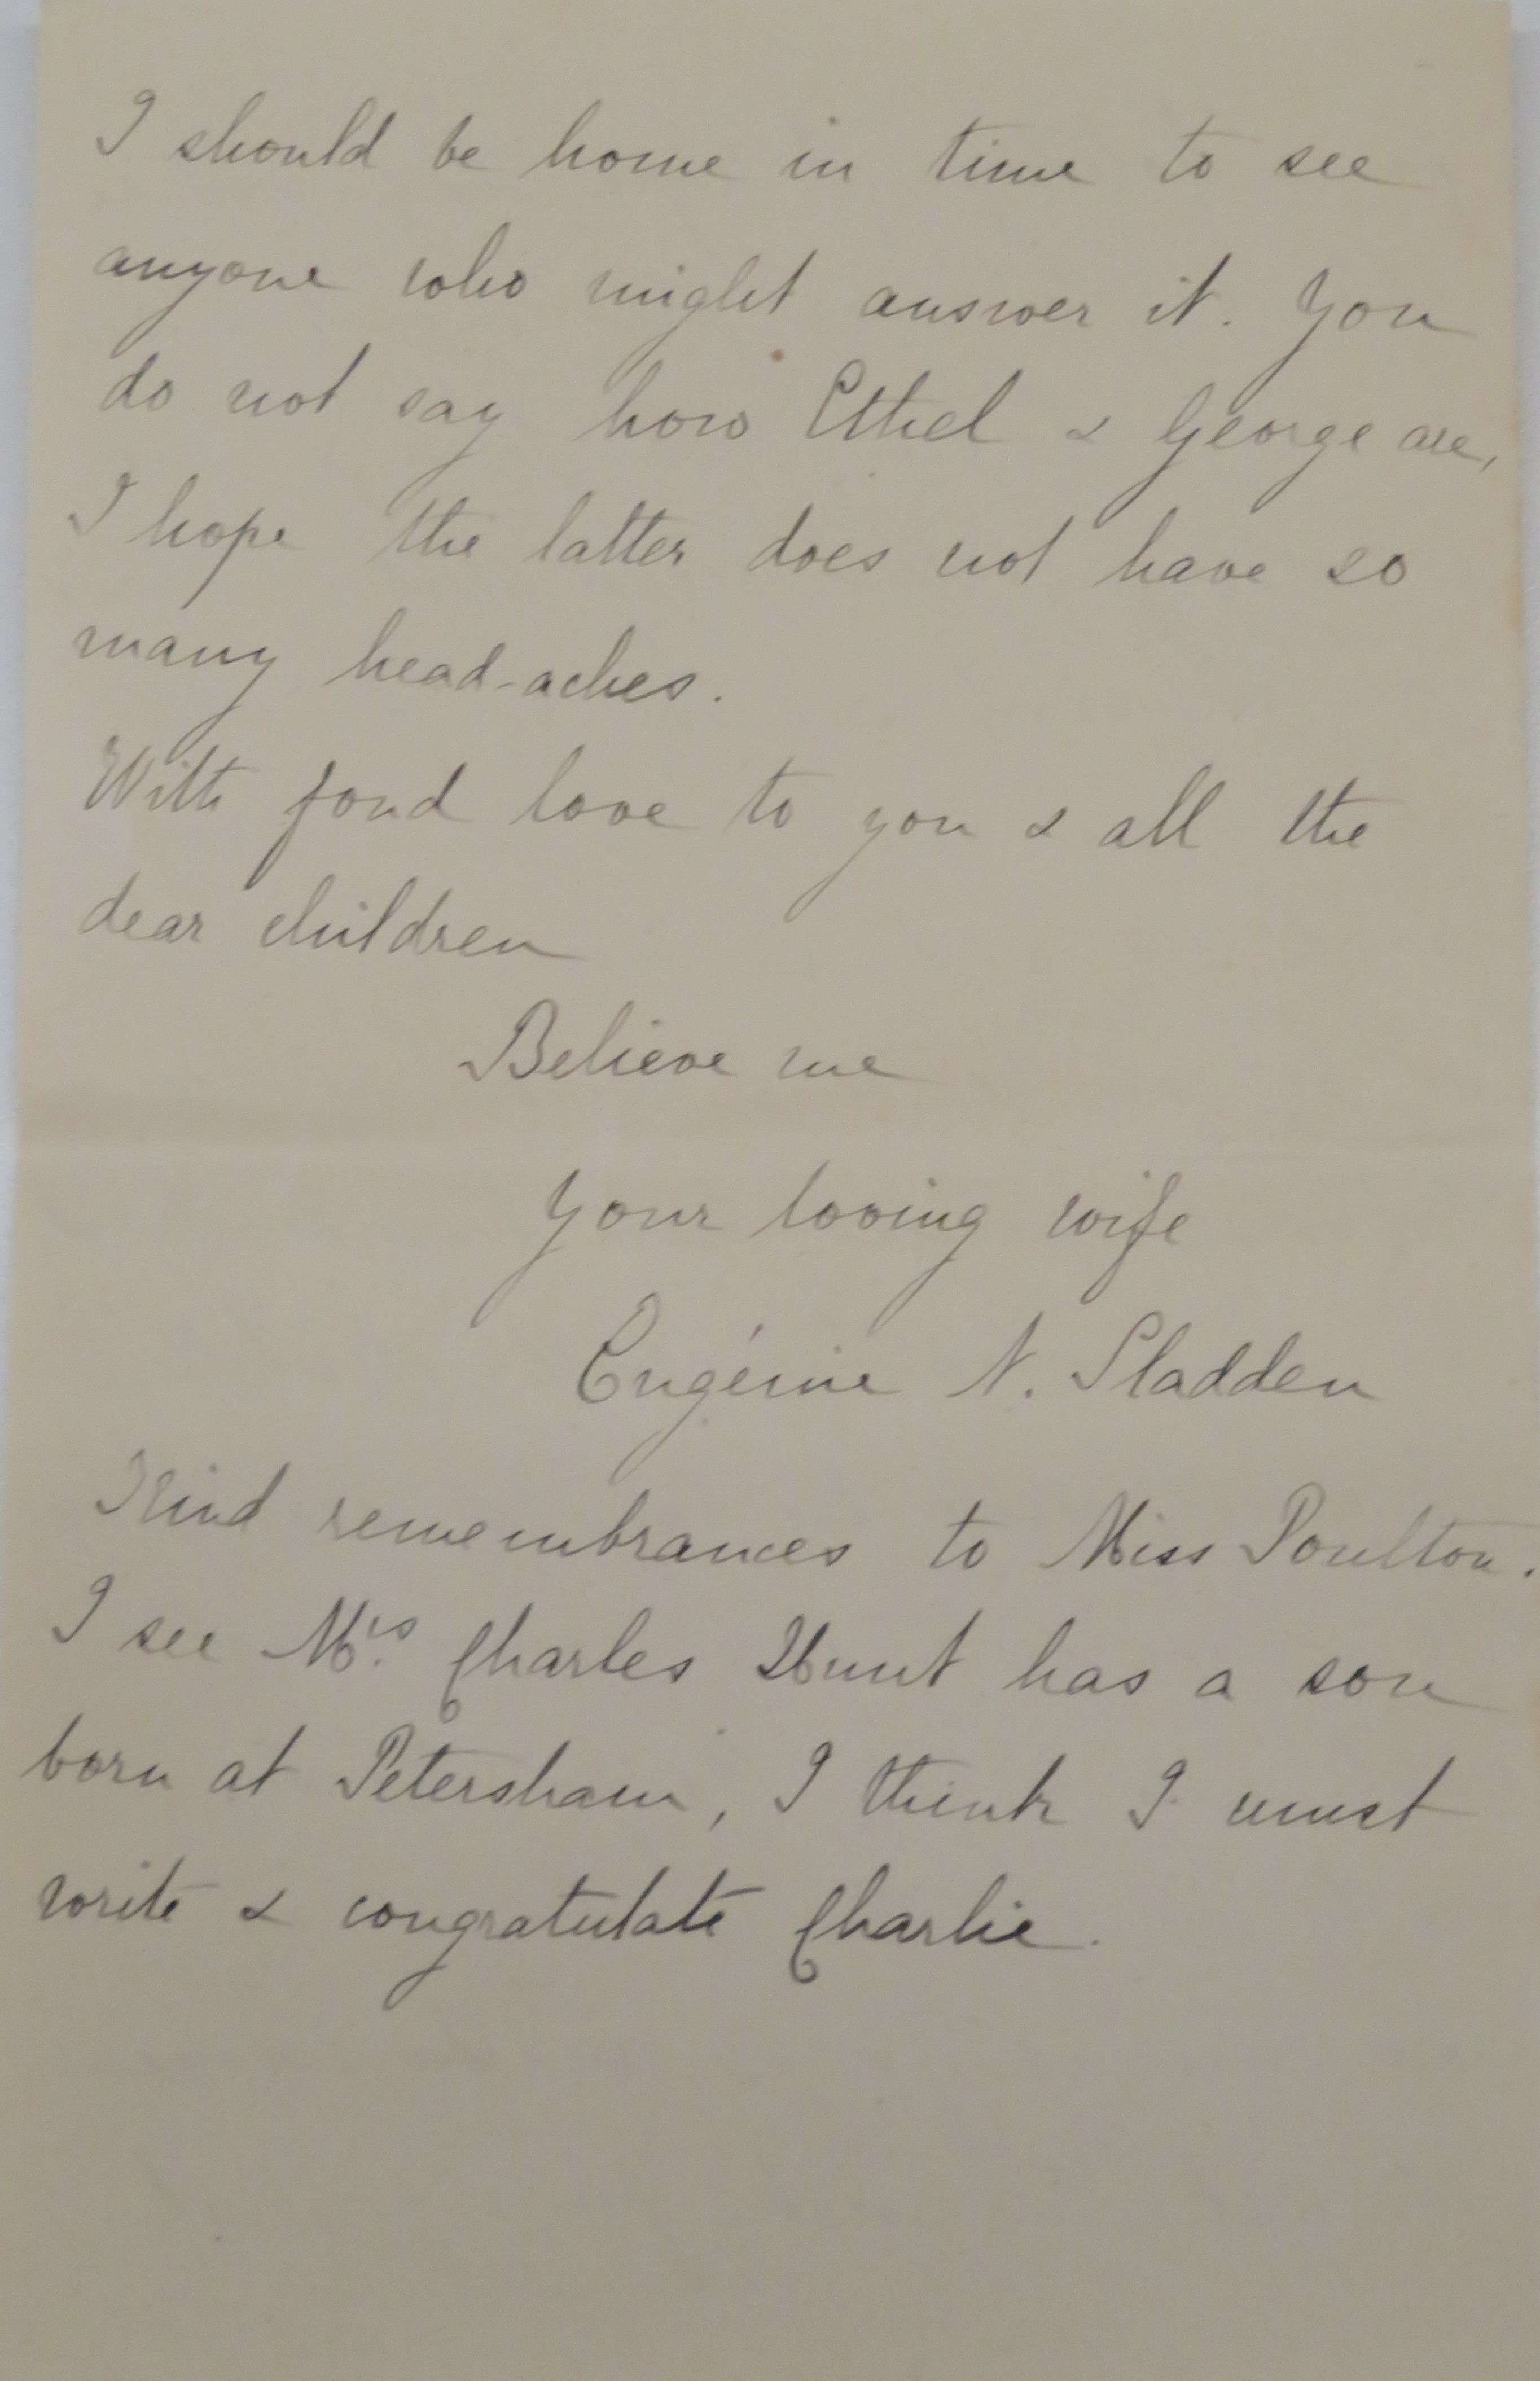 I should be home in time to see
anyone who might answer it. You
do not say how Ethel & George are,
I hope the latter does not have so
many head-aches.
With fond love to you & all the
dear children
Believe me
Your loving wife
Eugénie N. Sladden
Kind remembrances to Miss Poulton.
I see Mrs. Charles Hunt has a son
born at Petersham, I think I must
write & congratulate Charlie.